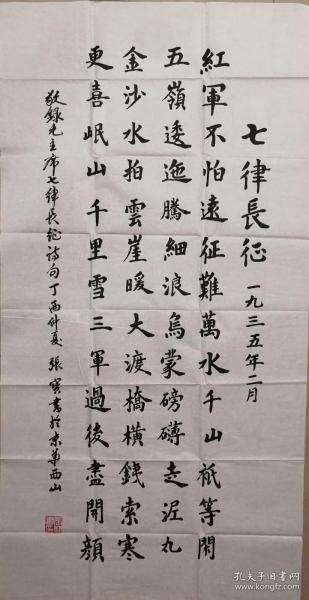 七律長征 一九三五年二月
紅軍不怕遠征難萬水千山祇等閑
五嶺逶迤騰細浪烏蒙磅礴走泥丸
金沙水拍雲崖暖大渡橋橫鐵索寒
更喜岷山千里雪三軍過後盡開顔
敬錄毛主席七律長征詩句丁酉仲夏 張寶書於京華西山
孔夫子旧书网
kongfz.com